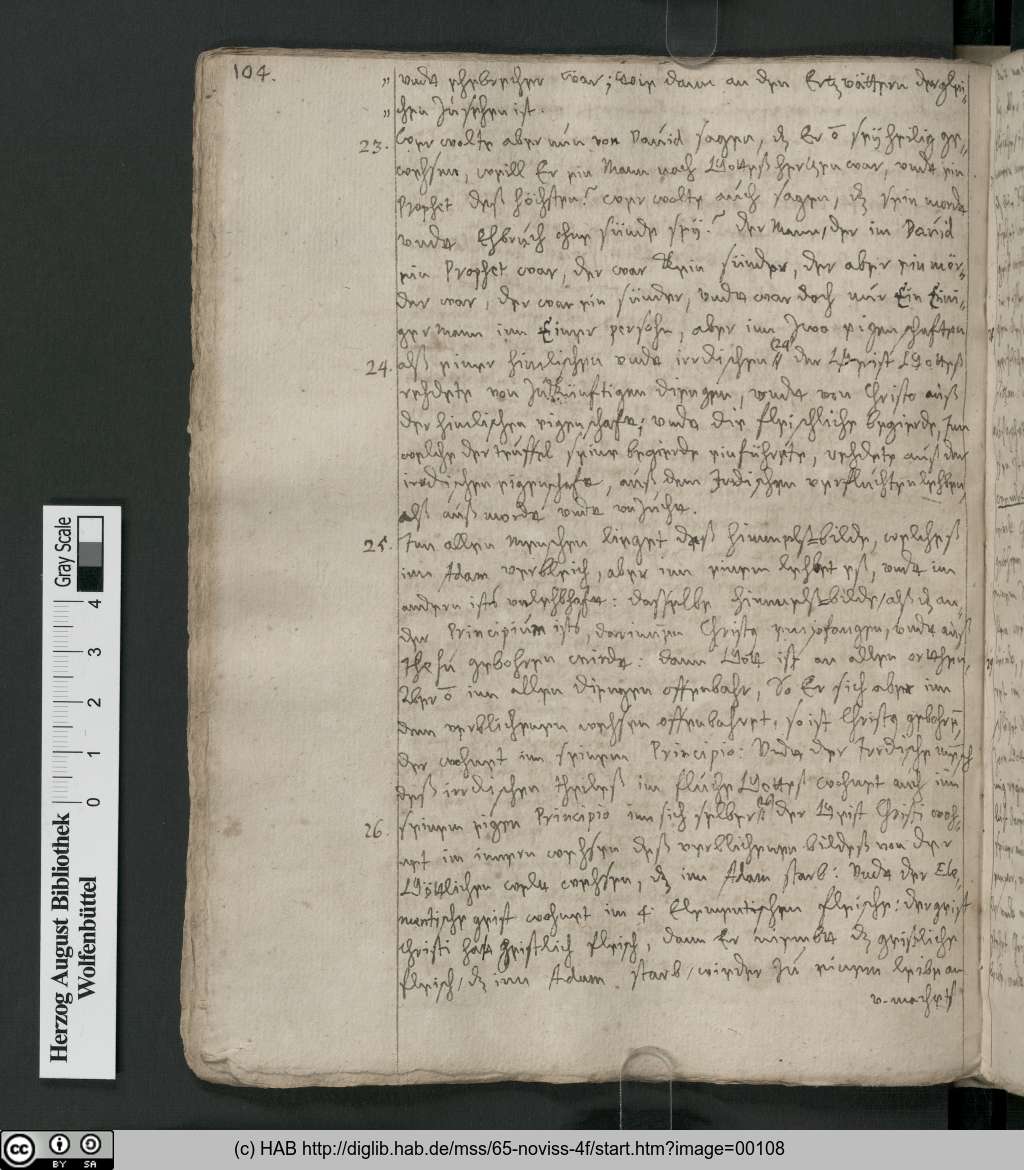 104.
" vndt ehebrecher war; wie dann an den Ertzvättern derglei-
" chen Zúsehen ist.
23. Wer wolte aber nún von Dauid sagen, dz Er ō seÿ heilig ge-
wehsen, weill Er ein Mann nach Gottes hertzen war, vndt ein
Prophet deß höchsten? wer wolte aúch sagen, dz sein mordt
vndt Ehbrúch ohne sünde seÿ? der Mann, der im Dauid
ein Prophet war, der war Kein sünder, der aber ein mör-
der war, der war ein sünder, vndt war doch núr Ein Eini-
ger Mann inn Einer persohn, aber inn Zwo eigenschafften
24. alß einer himlischen vndt irrdischen // der Geist Gottes
rehdete von Zúkünftigen diengen, vndt von Christo aúß
der himlischen eigenschaft; vndt die fleischliche begierde, Inn
welche der teúffel seine begierde einführete, rehdete aúß der
irrdischen eigenschaft, aúß dem Irdischen verflúchten lehben,
alß aúß mordt vndt vnzúcht.
25. Inn allen menschen lieget deß himmelß-bilde, welcheß
inn Adam verbleich, aber inn einem lehbet eß, vndt im
andern ists vnlehbhaft: dasselbe himmelß-bilde/alß dz an-
der Principiúm ists, darinnen Christq empfangen, vndt aúß
Ihesú gebohren wirdt: dann Gott ist an allen orthen,
Aber ō inn allen diengen offenbahr, So Er sich aber inn
dem verblichenen wehsen offenbahret, so ist Christq gebohrē,
der wohnet inn seinem Principio: Vndt der Irrdische mēsch
deß irrdischen theileß im flúche Gottes wohnet aúch inn
26. seinem eigen Principio inn sich selber // der Geist Christi woh-
net im innern wehsen deß verblichenen bildeß von der
Göttlichen welt wehsen, dz inn Adam starb: Vndt der Ele-
mentische geist wohnet im 4. Elementischen fleische: der geist
Christi hatt geistlich fleisch, dann Er nimbt dz geistliche
fleisch/ dz inn Adam starb/ wieder Zú einem leibe an
v. machets
Herzog August Bibliothek
Wolfenbüttel
0 1 2 3 4
Gray Scale
cc BY SA
(c) HAB http://diglib.hab.de/mss/65-noviss-4f/start.htm?image=00108